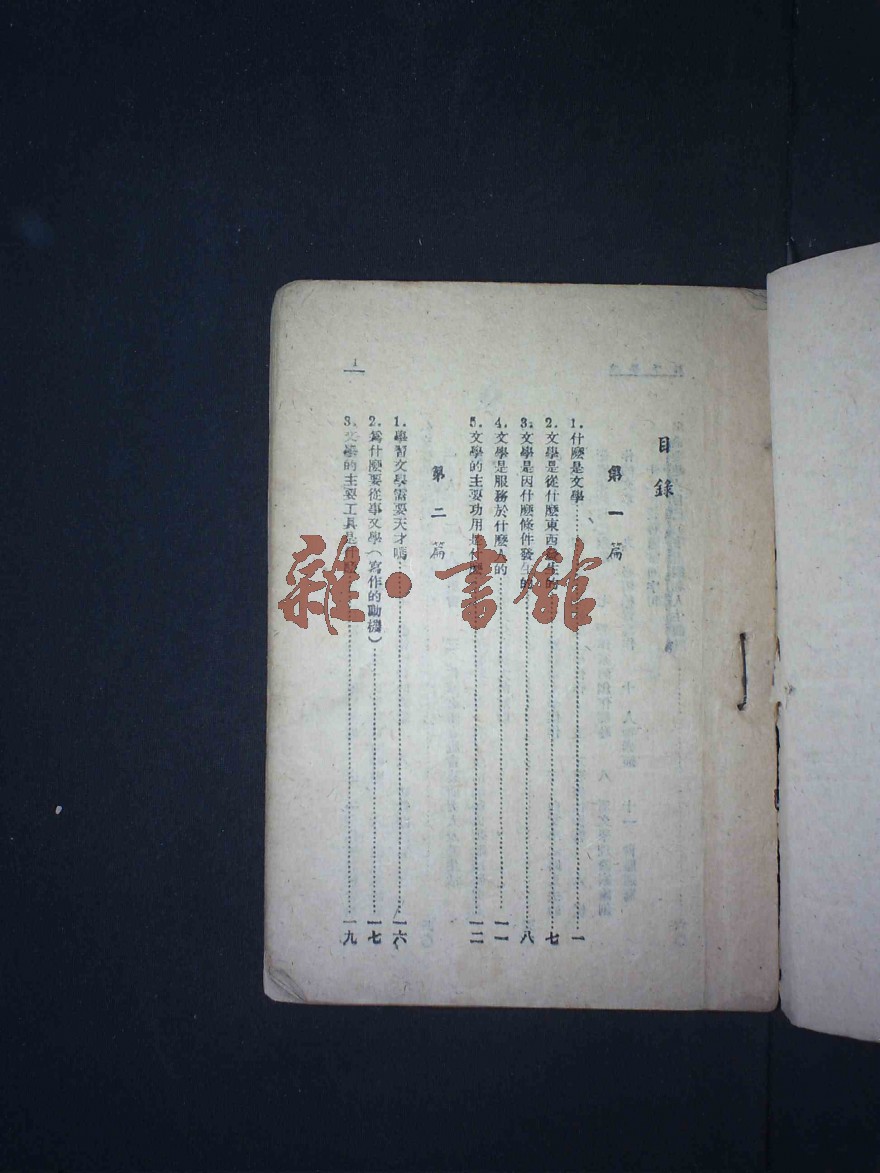 目錄
第一篇
1.什麼是文學……一
2.文學是從什麼東西發生的……七
3.文學是因什麼條件發生的……八
4.文學是服務於什麼人的……一一
5.文學的主要功用是什麼……一二
第二篇
1.學習文學需要天才嗎……一六
2.爲什麼要從事文學(寫作的動機)……一七
3.文學的主要工具是什麼……一九
1
雜·書館